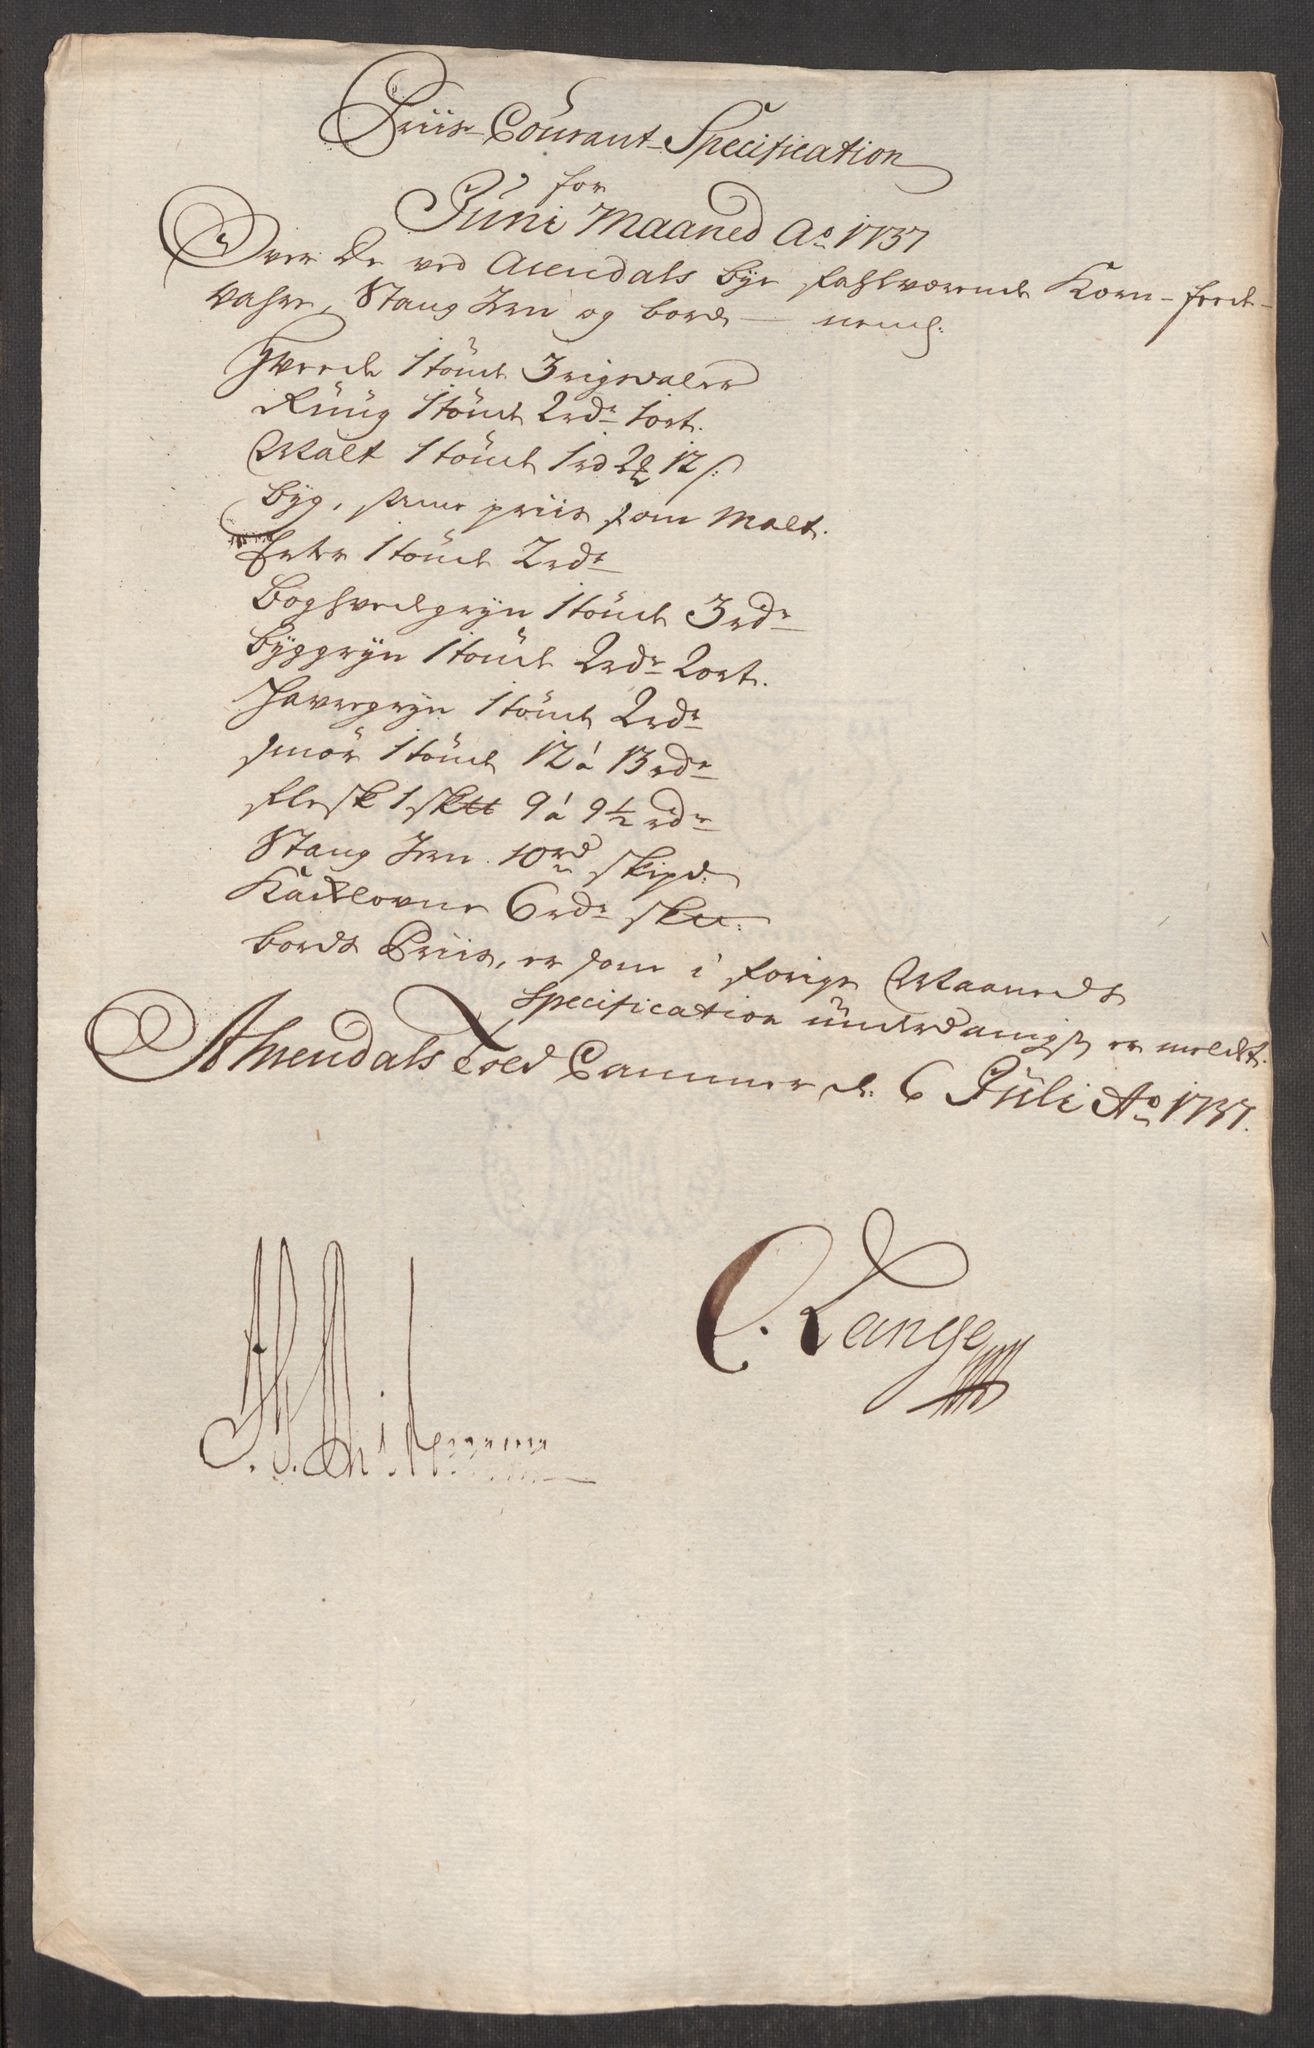 Priis-Courant-Specification
for
Juni Maaned Ao 1737
Over De ved Arendals bye faldværende Korn- feede-
Vahre, Stang Jern og bord — neml:
Hvede 1 tönde 3 rigsdaler
Rüüg 1 tönde 2 rdr 1 ort.
Malt 1 tönde 1 rd 2 ₰ 12 ß:
byg, samme priis som Malt.
Erter 1 tönde 2 rdr
Boghvedegryn 1 tönde 3 rdr
byggryn 1 tönde 2 rdr 2 ort.
Havregryn 1 tönde 2 rdr
smör 1 tönde 12 à 13 rdr
flesk 1 sktt 9 à 9½ rdr
Stang Jern 10 rd skipd:
Kackelovne 6 rdr sktt:
bords Priis, er som i forige Maaneds
Specification ünderdanigst er meldt.
Ahrendals Told Cammer d: 6 Júli Ao 1737.
C. Lange